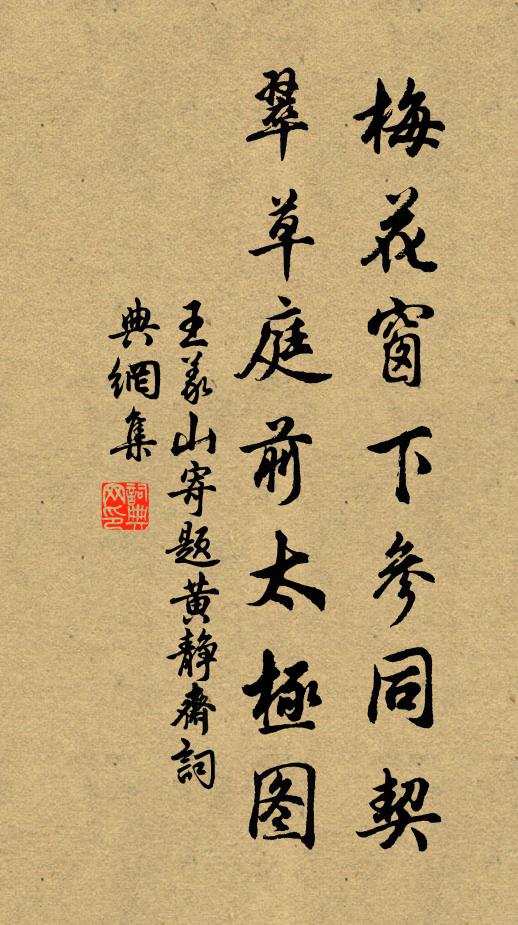 梅花窗下參同契
翠草庭前太極图
王義山寄題黄静齋詞
典網集
詞典网印